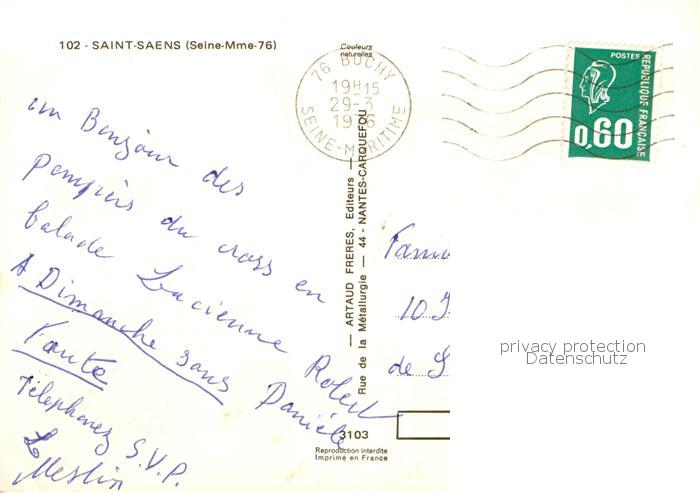 102 - SAINT-SAENS (Seine-Mme-76)
Couleurs naturelles
76 BUCHY
19H15
29-3
1976
SEINE-MARITIME
POSTES
REPUBLIQUE FRANÇAISE
0,60
un Bonjour des
pompiers du cross en
balade Lucienne Robert
A Dimanche sans Danièle
faute
Téléphonez S.V.P.
Meslin
— ARTAUD FRERES, Editeurs —
Rue de la Métallurgie — 44 - NANTES-CARQUEFOU
Fami
10
de S
privacy protection
Datenschutz
3103
Reproduction interdite
Imprimé en France